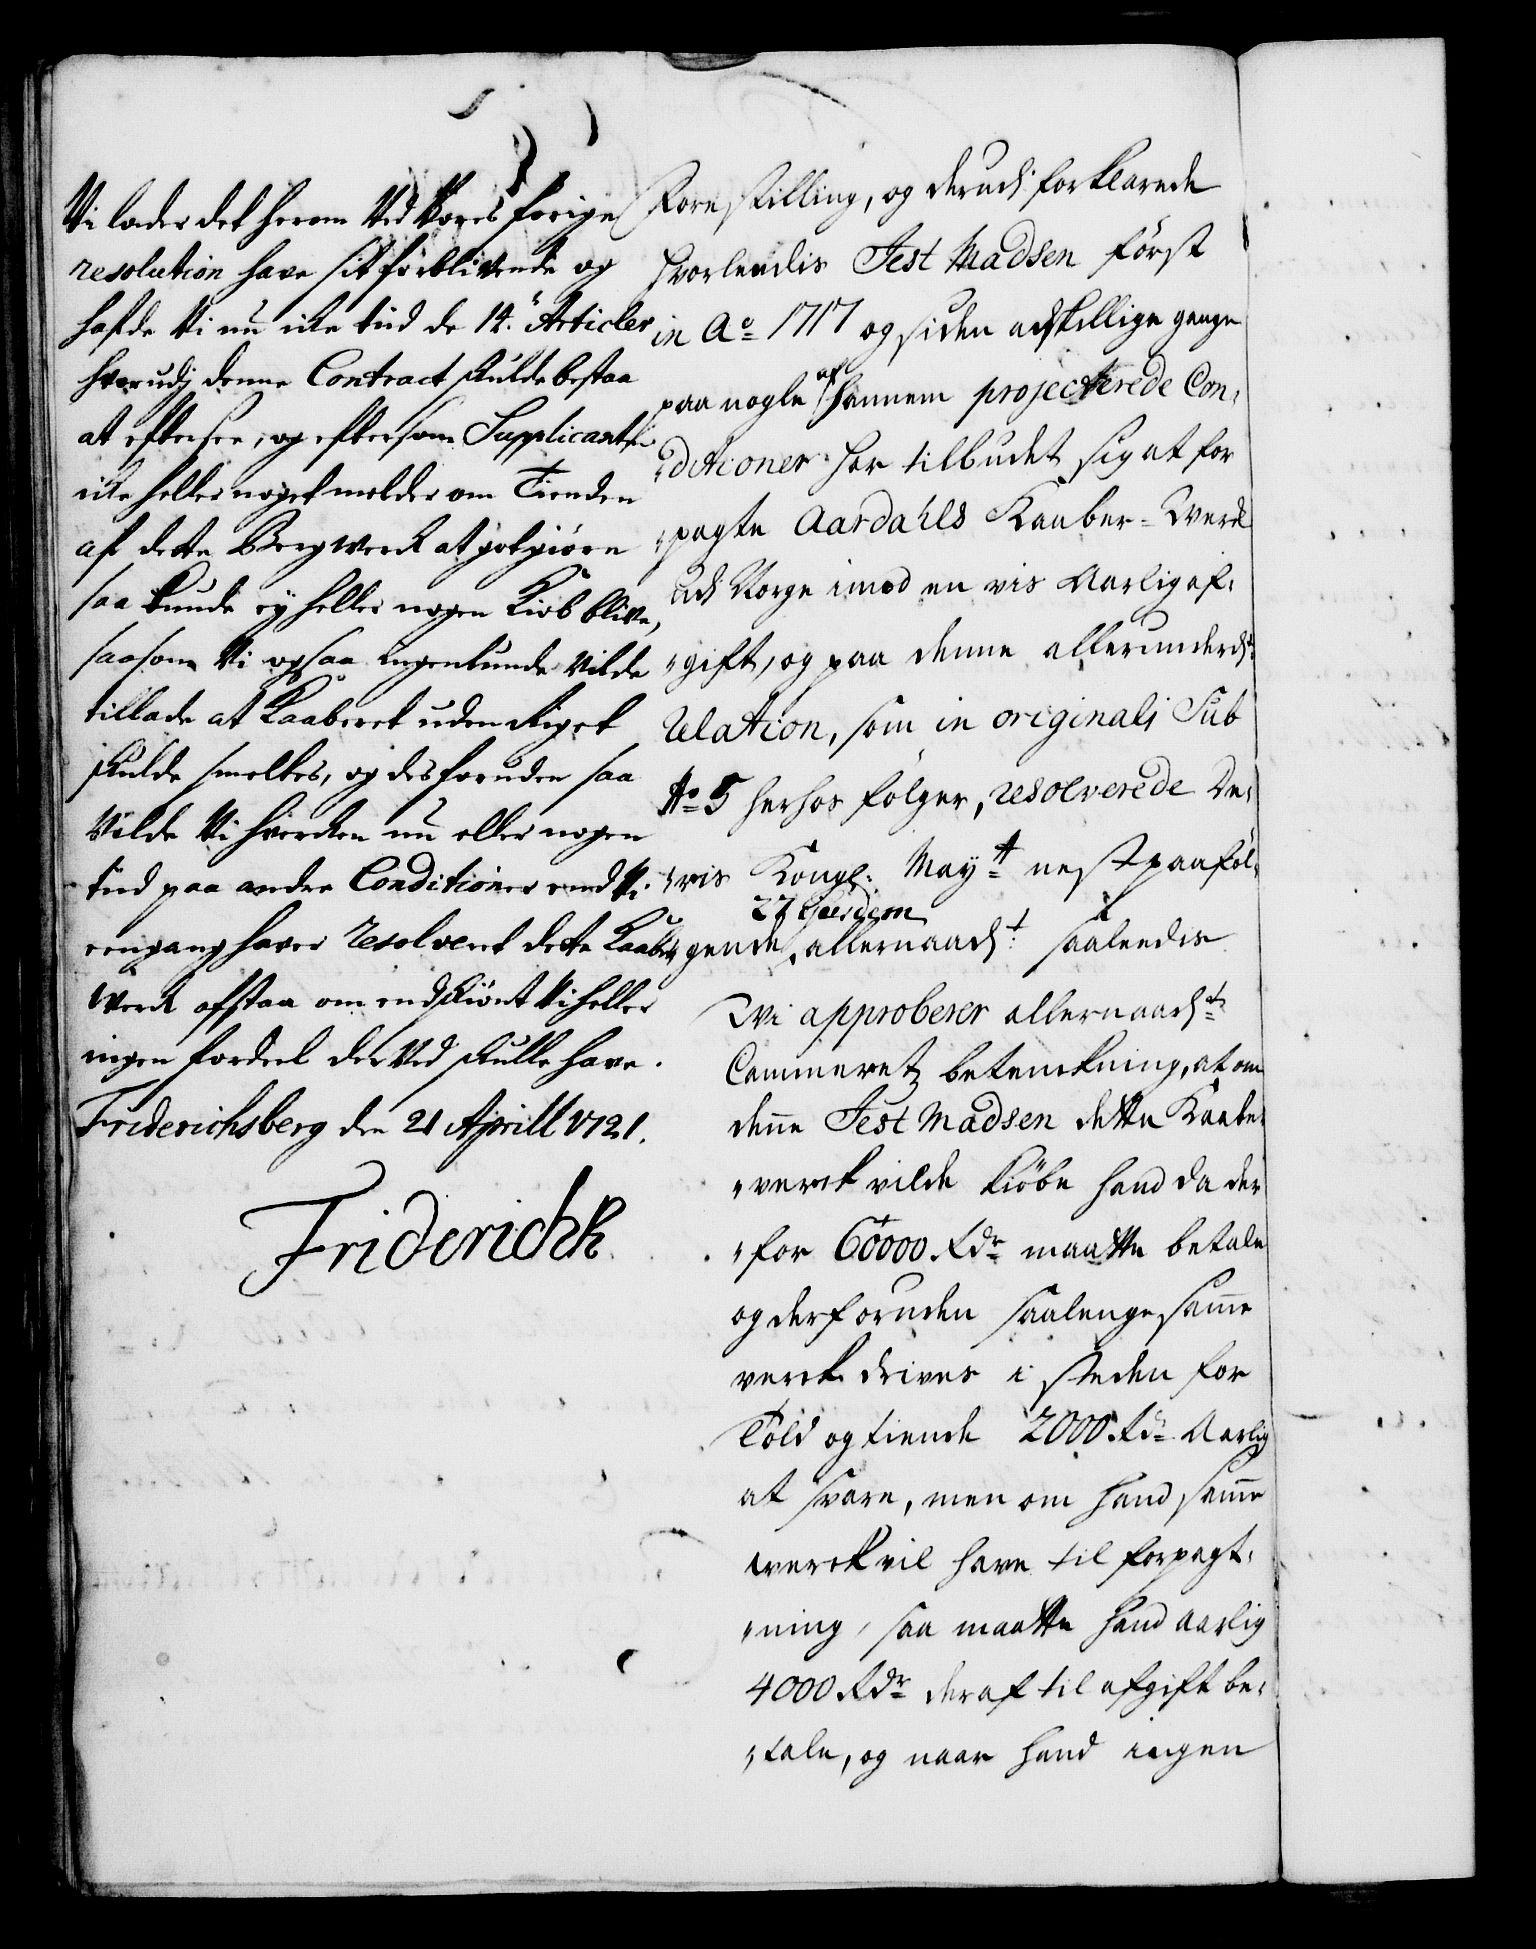 Vi lader det herom Ved Vores forige
resolution have sit forblivende og
hafde Vi nu icke tiid de 14. Articler
hvorudj denne Contract skulde bestaa
at eftersee, og eftersom Supplicanten
icke heller noget melder om Tienden
af dette Bergwerck at godgiøre
saa kunde ej heller nogen Kiøb blive,
saasom Vi ogsaa ingenlunde vilde
tillade at Kaaberet uden Riget
skulde smeltes, og desforuden saa
Vilde Vi hvercken nu eller nogen
tiid paa andre Conditioner end Vi
eengang haver resolveret dette Kaaber
Werck afstaa om endskiønt Vi heller
ingen fordeel der Ved skulle have.
Friderichsberg den 21 Aprill 1721.
Friderich R
Forestilling, og derudj forklarede
hvorlendis Jest Madsen först
in Ao 1717 og siden adskillige gange
paa nogle af hannem projecterede Con,
ditioner har tilbudet sig at for
pagte Aardahls Kaaber-Werck
udj Norge imod en vis Aarlig af,
gift, og paa denne allerunderdt
relation, som in originali sub
No 5 herhos fölger, resolverede De,
res Kongl. Mayt nest paaföl,
27 Ejusdem
gende, allernaadt saaledis
Wi approberer allernaadt
Cammerets betenckning, at om
denne Jest Madsen dette Kaaber
verck vilde kiöbe hand da der
for 60000 Rdr maatte betale
og derforuden saalenge samme
verck drives i steden for
Told og tiende 2000 Rdr Aarlig
at svare, men om hand samme
werck vil have til forpagt,
ning, saa maatte hand aarlig
4000 Rdr deraf til afgift be,
tale, og naar hand ingen